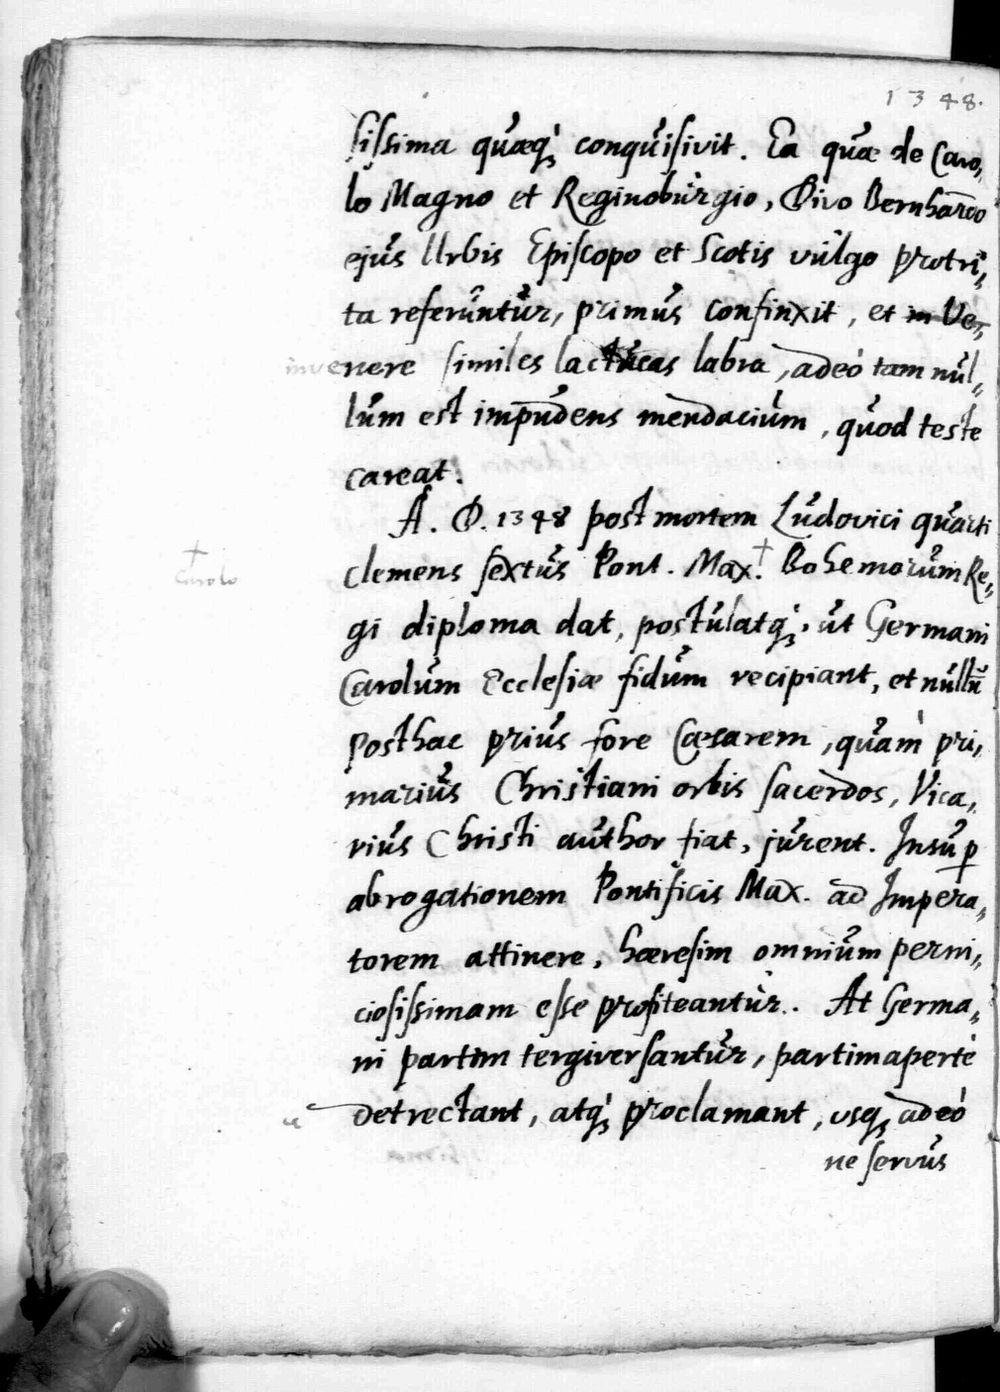 1348.
sissima quæq; conquisivit. Ea quæ de Caro,,
lo Magno et Reginoburgio, Divo Bernhardo
ejus Urbis Episcopo et Scotis vulgo protri,,
ta referuntur, primus confinxit, et in Ve,,
invenere similes lactucas labra, adeò tam nul,,
lum est impudens mendacium, quod teste
careat.
A. D. 1348 post mortem Ludovici quarti
Clemens sextus Pont. Max. † Bohemorum Re,,
† Carolo
gi diploma dat, postulatq;, ut Germani
Carolum Ecclesiæ fidum recipiant, et nullũ
posthac prius fore Cæsarem, quàm pri,,
marius Christiani orbis sacerdos, Vica,,
rius Christi author fiat, jurent. Insup
abrogationem Pontificis Max. ad Impera,,
torem attinere, hæresim omnium perni,,
ciosissimam esse profiteantur. At Germa,,
ni partim tergiversantur, partim apertè
detrectant, atq; proclamant, usq; adeò
ne servus